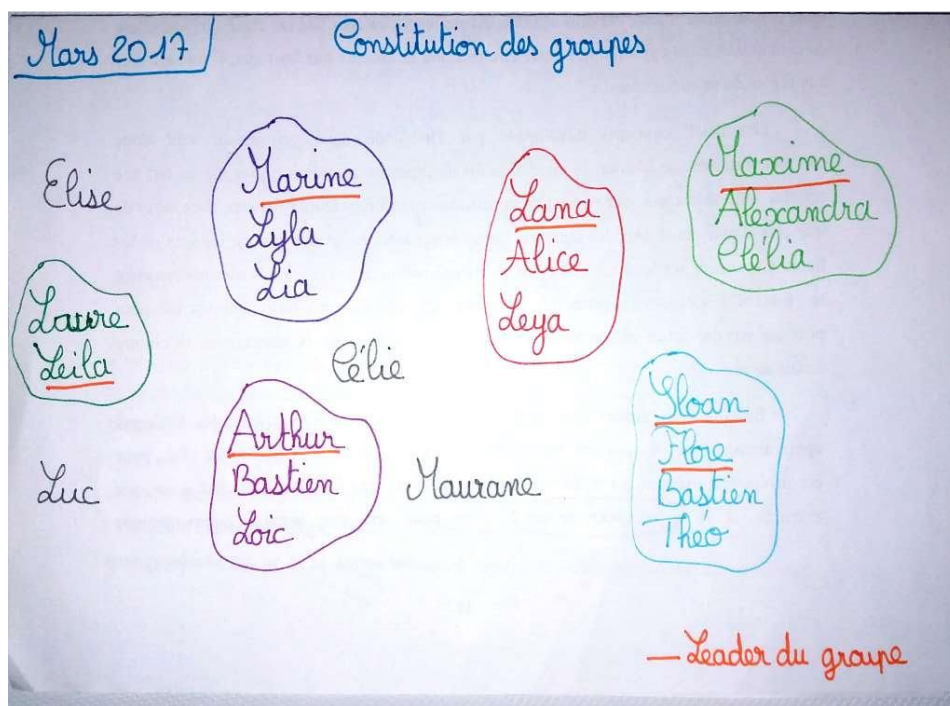 Mars 2017
Constitution des groupes
Elise
Marine
Lyla
Lia
Lana
Alice
Leya
Maxime
Alexandra
Clélia
Laure
Leila
Célie
Arthur
Bastien
Loic
Luc
Maurane
Sloan
Flore
Bastien
Théo
— Leader du groupe